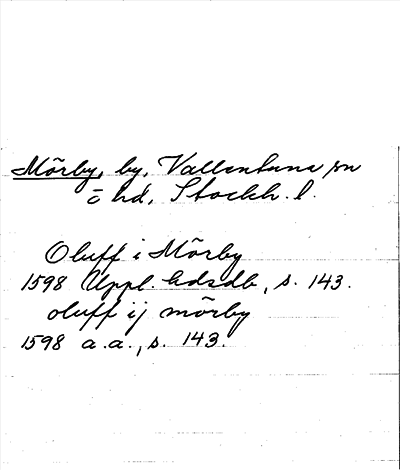 Mörby, by, Vallentuna sn
o hd, Stockh. l.
Oluff i Mörby
1598 Uppl. hdsdb, s. 143.
oluff ij mörby
1598 a.a., s. 143.